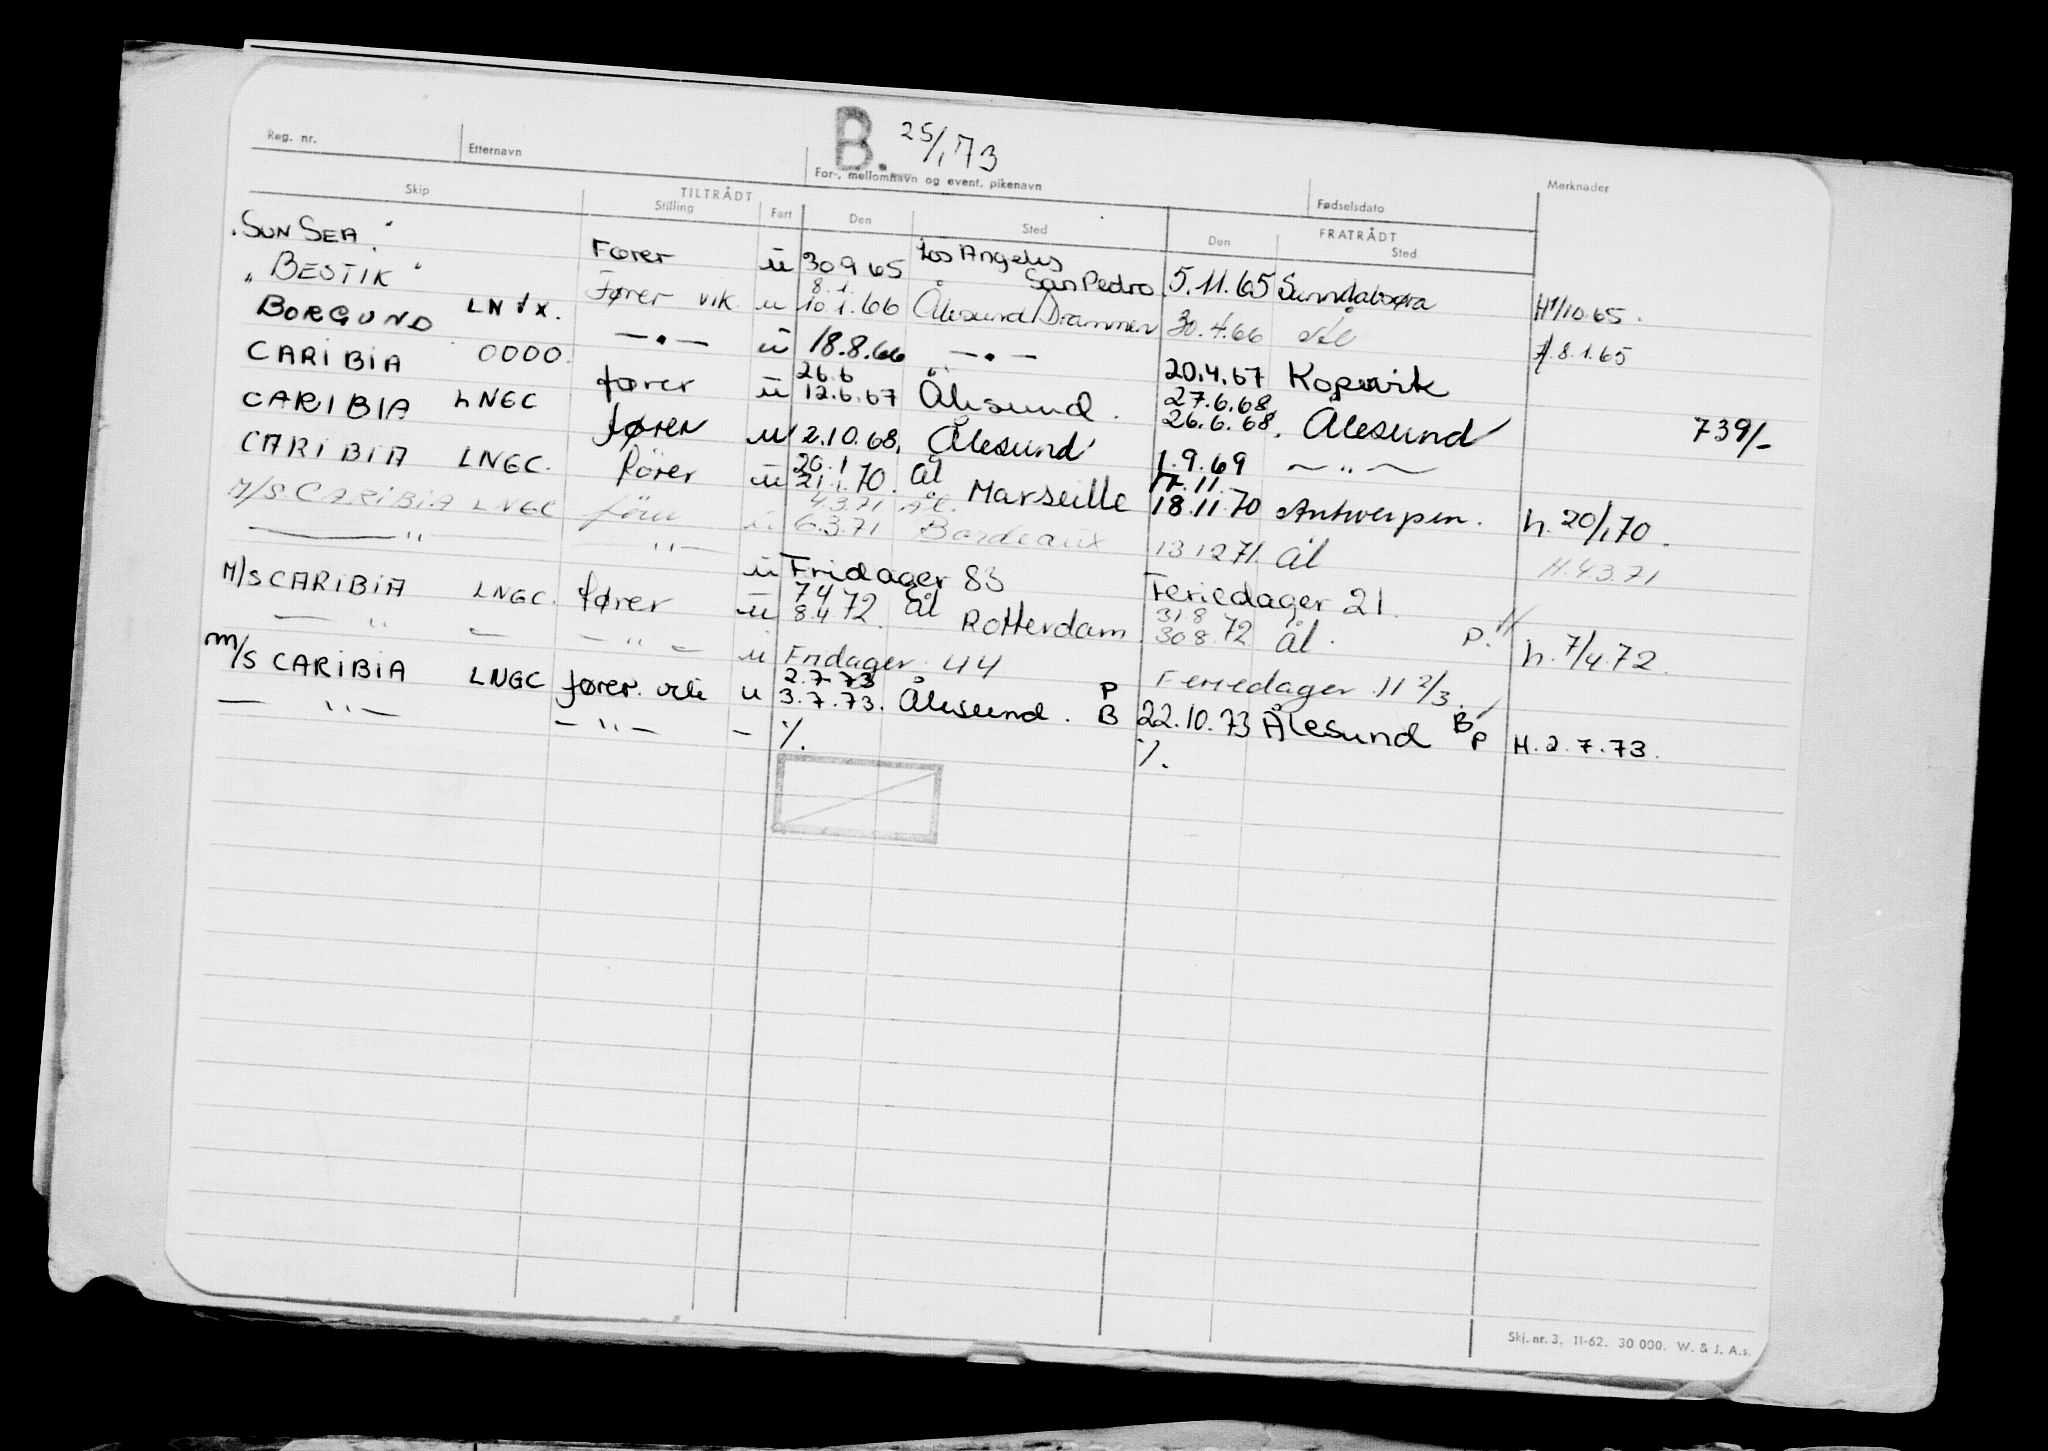 B. 25/1 73
Reg. nr. Etternavn For-, mellomnavn og event. pikenavn Fødselsdato Merknader
Skip TILTRÅDT Stilling Fart Den Sted FRATRÅDT Den Sted
"SUN SEA." Fører ü 30 9 65 Los Angeles San Pedro 5.11.65 Sunndalsøra H1/10.65.
"BESTIK" LN Fører vik. u 8.1. 10.1.66 Ålesund/Drammen 30.4.66 Ål 8.1.65
BORGUND — • — ü 18.8.66 — • — 20.4.67 Kopervik
CARIBIA 0000. fører ü 26.6 12.6.67 Ålesund. 27.6.68 26.6.68. Ålesund 739/-
CARIBIA LNGC fører u 2.10.68. Ålesund 1.9.69 — " —
CARIBIA LNGC. fører ü 20.1 21.1.70. Ål Marseille 17.11. 18.11.70 Antwerpen. h. 20/1 70.
M/S CARIBIA LNGC fører ü 4.3.71 6.3.71 Ål. Bordeaux 13 12 71. Ål H. 4.3.71
— " — " — ü Fridager 83 Feriedager 21.
M/S CARIBIA LNGC. fører ü 7 4 8.4 72. Ål Rotterdam. 31.8 30 8.72 Ål. P. h. 7/4.72.
— " — — " — u Fridager 44 Feriedager 11 2/3.
M/S CARIBIA LNGC fører u 2.7.73 3.7.73. Ålesund. P B 22.10.73 Ålesund B P H. 2.7.73.
— " — — " — - %. %.
Skj. nr. 3. 11-62. 30 000. W. & J. A.s.